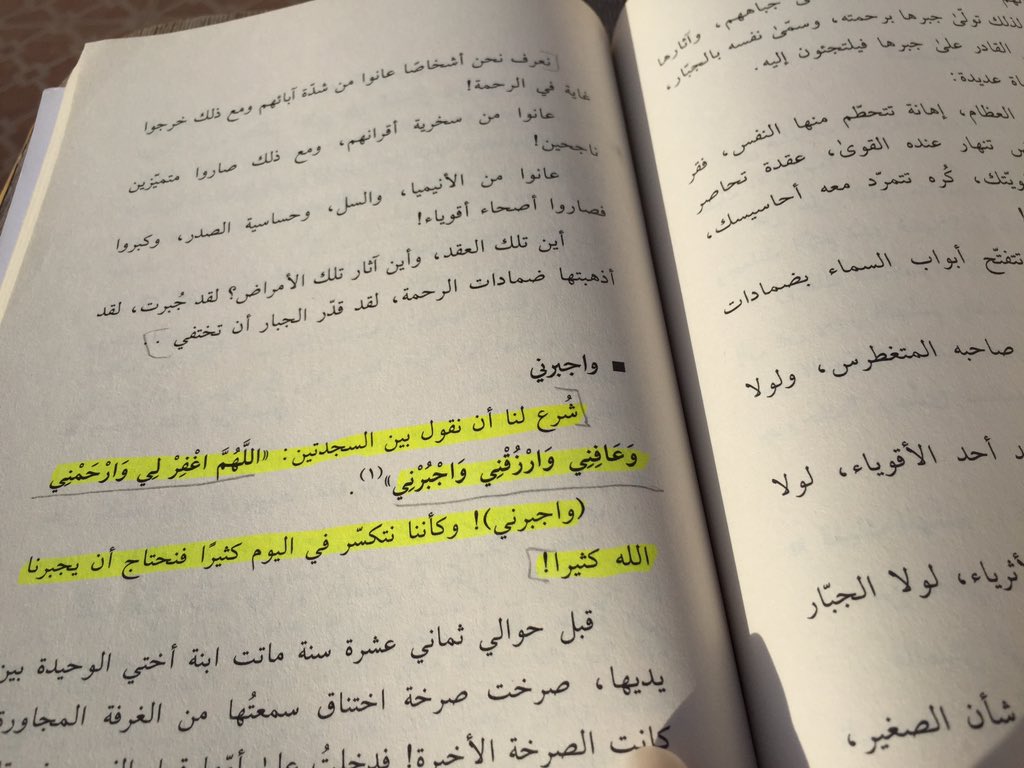 جباههم، وآثارها
لذلك تولّىٰ جبرها برحمته، وسمّىٰ نفسه بالجبّار،
القادر علىٰ جبرها فيلتجئون إليه.
عديدة:
العظام، إهانة تتحطّم منها النفس، فقر
تنهار عنده القوىٰ، عقدة تحاصر
كُره تتمرّد معه أحاسيسك،
تتفتّح أبواب السماء بضمادات
صاحبه المتغطرس، ولولا
أحد الأقوياء، لولا
لولا الجبّار
شأن الصغير،
نعرف نحن أشخاصًا عانوا من شدّة آبائهم ومع ذلك خرجوا
غاية في الرحمة!
عانوا من سخرية أقرانهم، ومع ذلك صاروا متميّزين
ناجحين!
عانوا من الأنيميا، والسل، وحساسية الصدر، وكبروا
فصاروا أصحاء أقوياء!
أين تلك العقد، وأين آثار تلك الأمراض؟ لقد جُبرت، لقد
أذهبتها ضمادات الرحمة، لقد قدّر الجبار أن تختفي.
■ واجبرني
شُرع لنا أن نقول بين السجدتين: «اللَّهُمَّ اغْفِرْ لِي وَارْحَمْنِي
وَعَافِنِي وَارْزُقْنِي وَاجْبُرْنِي»(١).
(واجبرني)! وكأننا نتكسّر في اليوم كثيرًا فنحتاج أن يجبرنا
الله كثيرا!
قبل حوالي ثماني عشرة سنة ماتت ابنة أختي الوحيدة بين
يديها، صرخت صرخة اختناق سمعتُها من الغرفة المجاورة
كانت الصرخة الأخيرة! فدخلتُ علىٰ